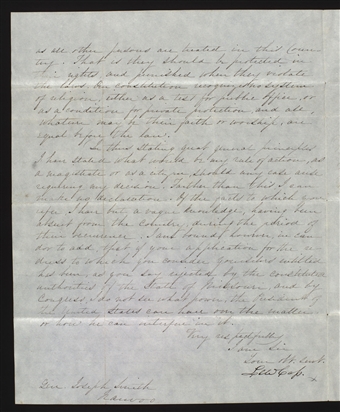 as all other persons are treated in this Coun
try. That is they should be protected in
their rights, and punished when they violate
the laws. Our constitution recognizes no system
of religion, either as a test for public office, or
as a condition for private protection and all,
whatever may be their faith or worship, are
equal before the law.
In thus stating great general principles
I have stated what would be my rule of action, as
a magistrate or as a citizen should any case arise
requiring my decision. Farther than this I can
make no declaration. Of the facts to which you
refer I have but a vague knowledge, having been
absent from the Country, during the period of
their occurrence. I am bound, however, in can
dor to add, that if your application for the re
dress to which you consider yourselves entitled
has been, as you say rejected by the constituted
authorities of the State of Missouri, and by
Congress, I do not see what power the President of
the United States can have over the matter,
or how he can interfere in it.
Very respectfully
I am Sir
Your Ob. Servt.
Lew Cass.
Genl Joseph Smith
Nauvoo